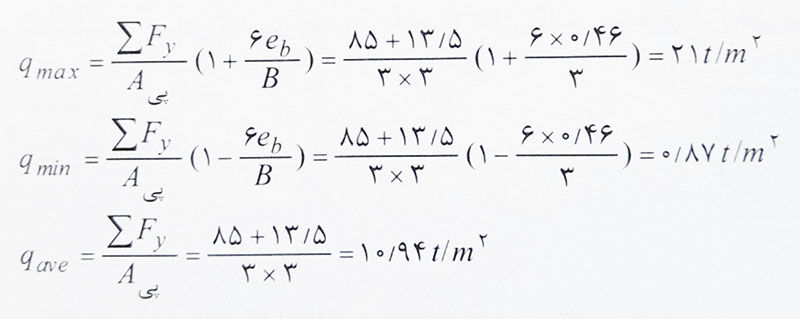 q max = ∑Fy / A پی (۱ + ۶e_b / B) = ۸۵ + ۱۳/۵ / ۳ × ۳ (۱ + ۶ × ۰/۴۶ / ۳) = ۲۱ t/m^۲
q min = ∑Fy / A پی (۱ − ۶e_b / B) = ۸۵ + ۱۳/۵ / ۳ × ۳ (۱ − ۶ × ۰/۴۶ / ۳) = ۰/۸۷ t/m^۲
q ave = ∑Fy / A پی = ۸۵ + ۱۳/۵ / ۳ × ۳ = ۱۰/۹۴ t/m^۲